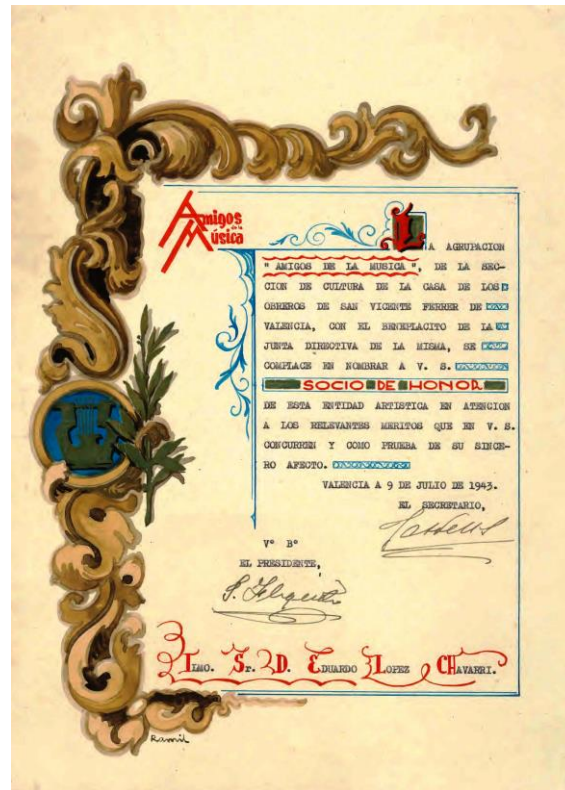 Amigos
de la
Música
LA AGRUPACION
"AMIGOS DE LA MUSICA", DE LA SEC-
CION DE CULTURA DE LA CASA DE LOS
OBREROS DE SAN VICENTE FERRER DE
VALENCIA, CON EL BENEPLACITO DE LA
JUNTA DIRECTIVA DE LA MISMA, SE
COMPLACE EN NOMBRAR A V. S.
SOCIO DE HONOR
DE ESTA ENTIDAD ARTISTICA EN ATENCION
A LOS RELEVANTES MERITOS QUE EN V. S.
CONCURREN Y COMO PRUEBA DE SU SINCE-
RO AFECTO.
VALENCIA A 9 DE JULIO DE 1943.
EL SECRETARIO,
Vº Bº
EL PRESIDENTE,
ILMO. SR. D. EDUARDO LOPEZ CHAVARRI.
Ramil